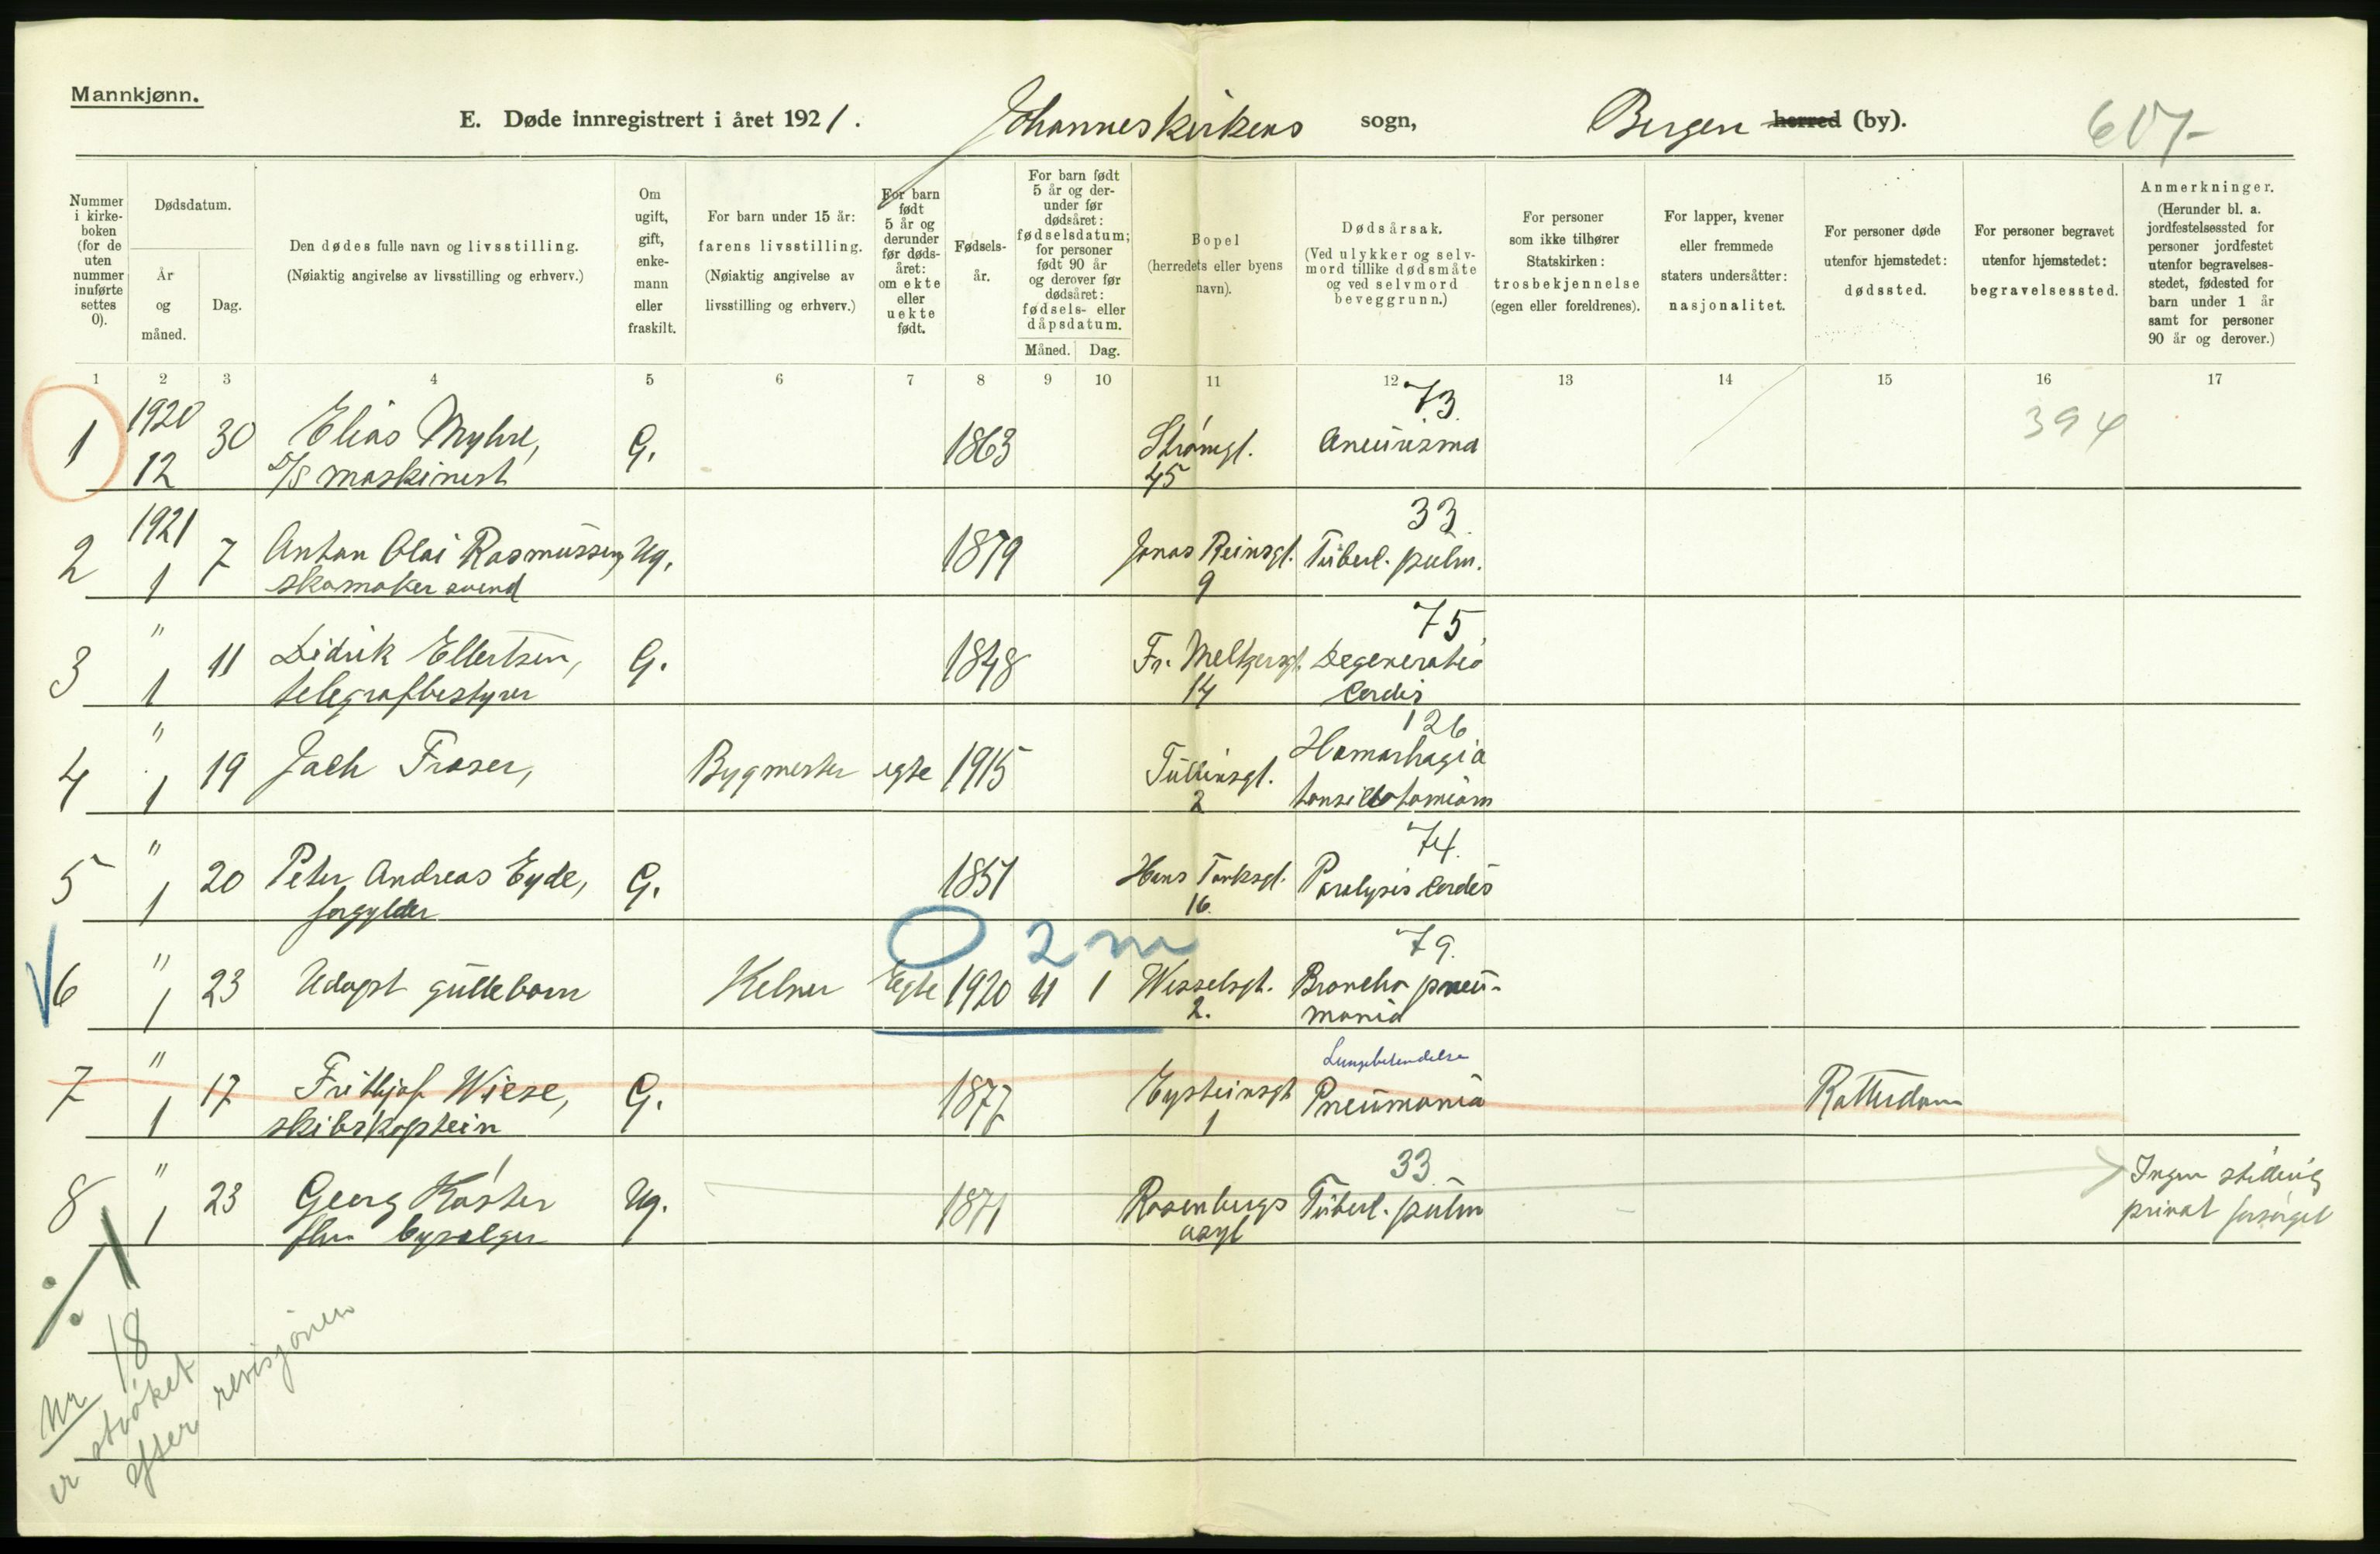 Mannkjønn.
E. Døde innregistrert i året 1921. Johanneskirkens sogn, Bergen herred (by).
Nummer i kirke-boken (for de uten nummer innførte settes 0).
Dødsdatum.
År og måned.
Dag.
Den dødes fulle navn og livsstilling.
(Nøiaktig angivelse av livsstilling og erhverv.)
Om ugift, gift, enke-mann eller fraskilt.
For barn under 15 år: farens livsstilling.
(Nøiaktig angivelse av livsstilling og erhverv.)
For barn født 5 år og derunder før døds-året: om ekte eller uekte født.
Fødsels-år.
For barn født 5 år og der-under før dødsåret: fødselsdatum; for personer født 90 år og derover før dødsåret: fødsels- eller dåpsdatum.
Måned. Dag.
Bopel (herredets eller byens navn).
Dødsårsak.
(Ved ulykker og selv-mord tillike dødsmåte og ved selvmord beveggrunn.)
For personer som ikke tilhører Statskirken: trosbekjennelse (egen eller foreldrenes).
For lapper, kvener eller fremmede staters undersåtter: nasjonalitet.
For personer døde utenfor hjemstedet: dødssted.
For personer begravet utenfor hjemstedet: begravelsessted.
Anmerkninger.
(Herunder bl. a. jordfestelsessted for personer jordfestet utenfor begravelses-stedet, fødested for barn under 1 år samt for personer 90 år og derover.)
1 2 3 4 5 6 7 8 9 10 11 12 13 14 15 16 17
1 1920 12 30 Elias Myhre, G. 1863 Strømgt. 45 73. Aneurisma 394
D/S maskinist
2 1921 1 7 Anton Olai Rasmussen, Ug. 1879 Jonas Reinsgt. 9 33. Tuberl. pulm.
skomaker svend
3 " 1 11 Didrik Ellertsen, G. 1848 Fr. Meltzersgt. 14 75 Degeneratio Cordis
telegrafbestyrer
4 " 1 19 Jach Fraser, Bygmester egte 1915 Tullinsgt. 2 126 Hæmorhagia tonsillotomiam
5 " 1 20 Peter Andreas Eyde, G. 1851 Hans Tanksgt. 16. 74. Paralysis Cordis
forgylder
0 2 m
6 " 1 23 Udøpt guttebarn Kelner Egte 1920 11 1 Wesselsgt. 2. 79. Broncho pneu-monia
7 " 1 17 Frithjof Wiese, G. 1877 Eysteinsgt 1 Lungebetendelse Pneumonia Rotterdam
skibskaptein
8 " 1 23 Georg Køster Ug. 1871 Rosenbergs asyl 33. Tuberl. pulm Ingen stilling
privat forsørget
Nr 18
er strøket
efter revisjonen